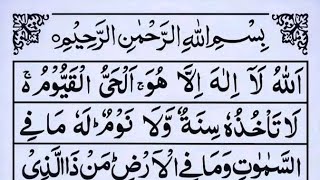 بِسْمِ اللهِ الرَّحْمٰنِ الرَّحِيْمِ
اَللهُ لَآ اِلٰهَ اِلَّا هُوَۚ اَلْحَىُّ الْقَيُّوْمُ ۚ
لَا تَاْخُذُهٗ سِنَةٌ وَّلَا نَوْمٌ ؕ لَهٗ مَا فِى
السَّمٰوٰتِ وَمَا فِى الْاَرْضِ ؕ مَنْ ذَا الَّذِىْ